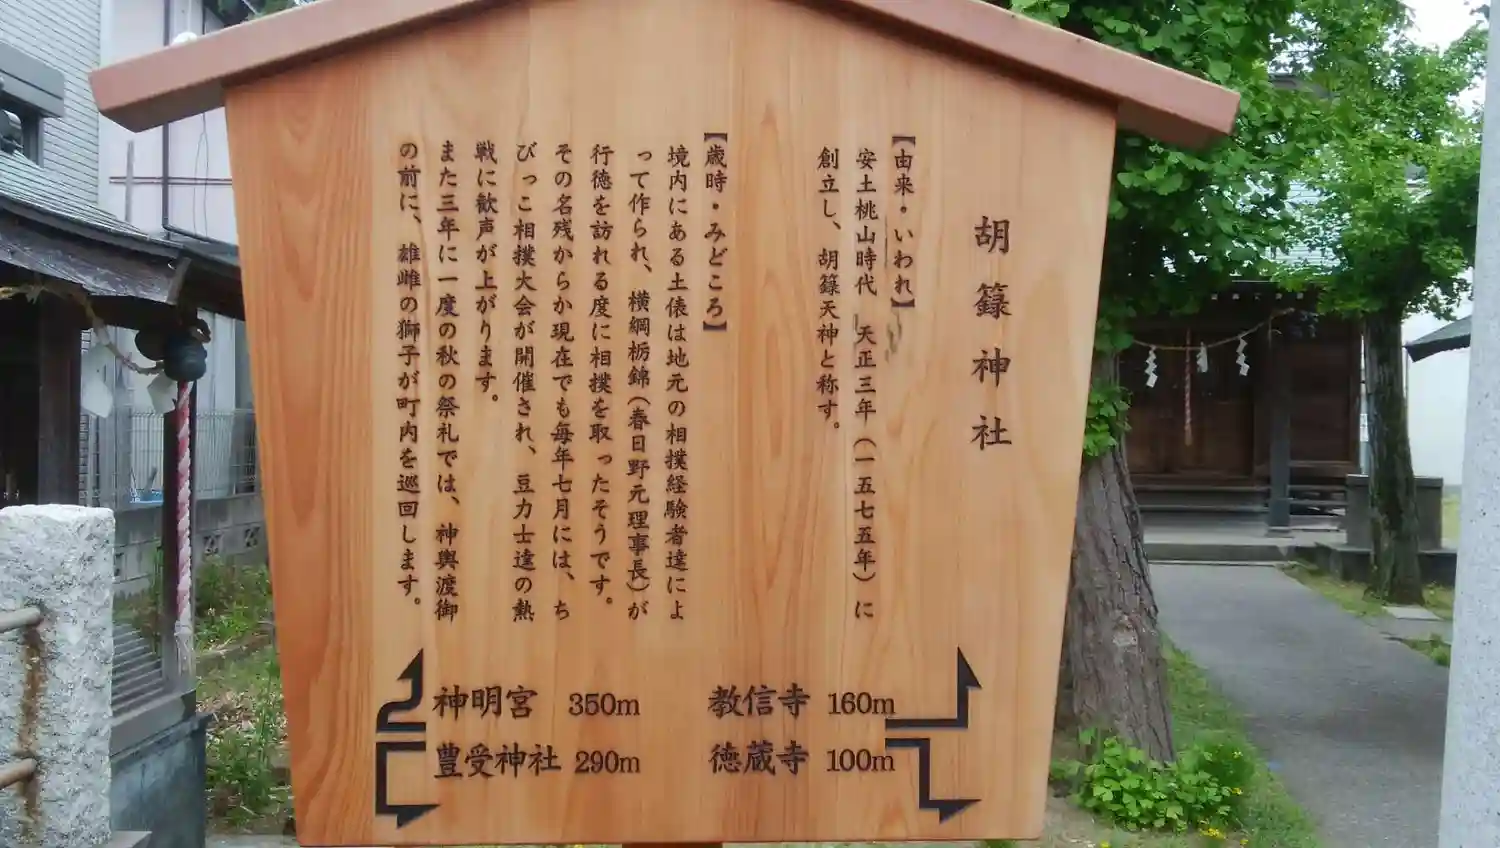 胡籙神社
【由来・いわれ】
安土桃山時代 天正三年(一五七五年)に
創立し、胡籙天神と称す。
【歳時・みどころ】
境内にある土俵は地元の相撲経験者達によ
って作られ、横綱栃錦(春日野元理事長)が
行徳を訪れる度に相撲を取ったそうです。
その名残からか現在でも毎年七月には、ち
びっこ相撲大会が開催され、豆力士達の熱
戦に歓声が上がります。
また三年に一度の秋の祭礼では、神輿渡御
の前に、雄雌の獅子が町内を巡回します。
教信寺 160m
徳蔵寺 100m
神明宮 350m
豊受神社 290m